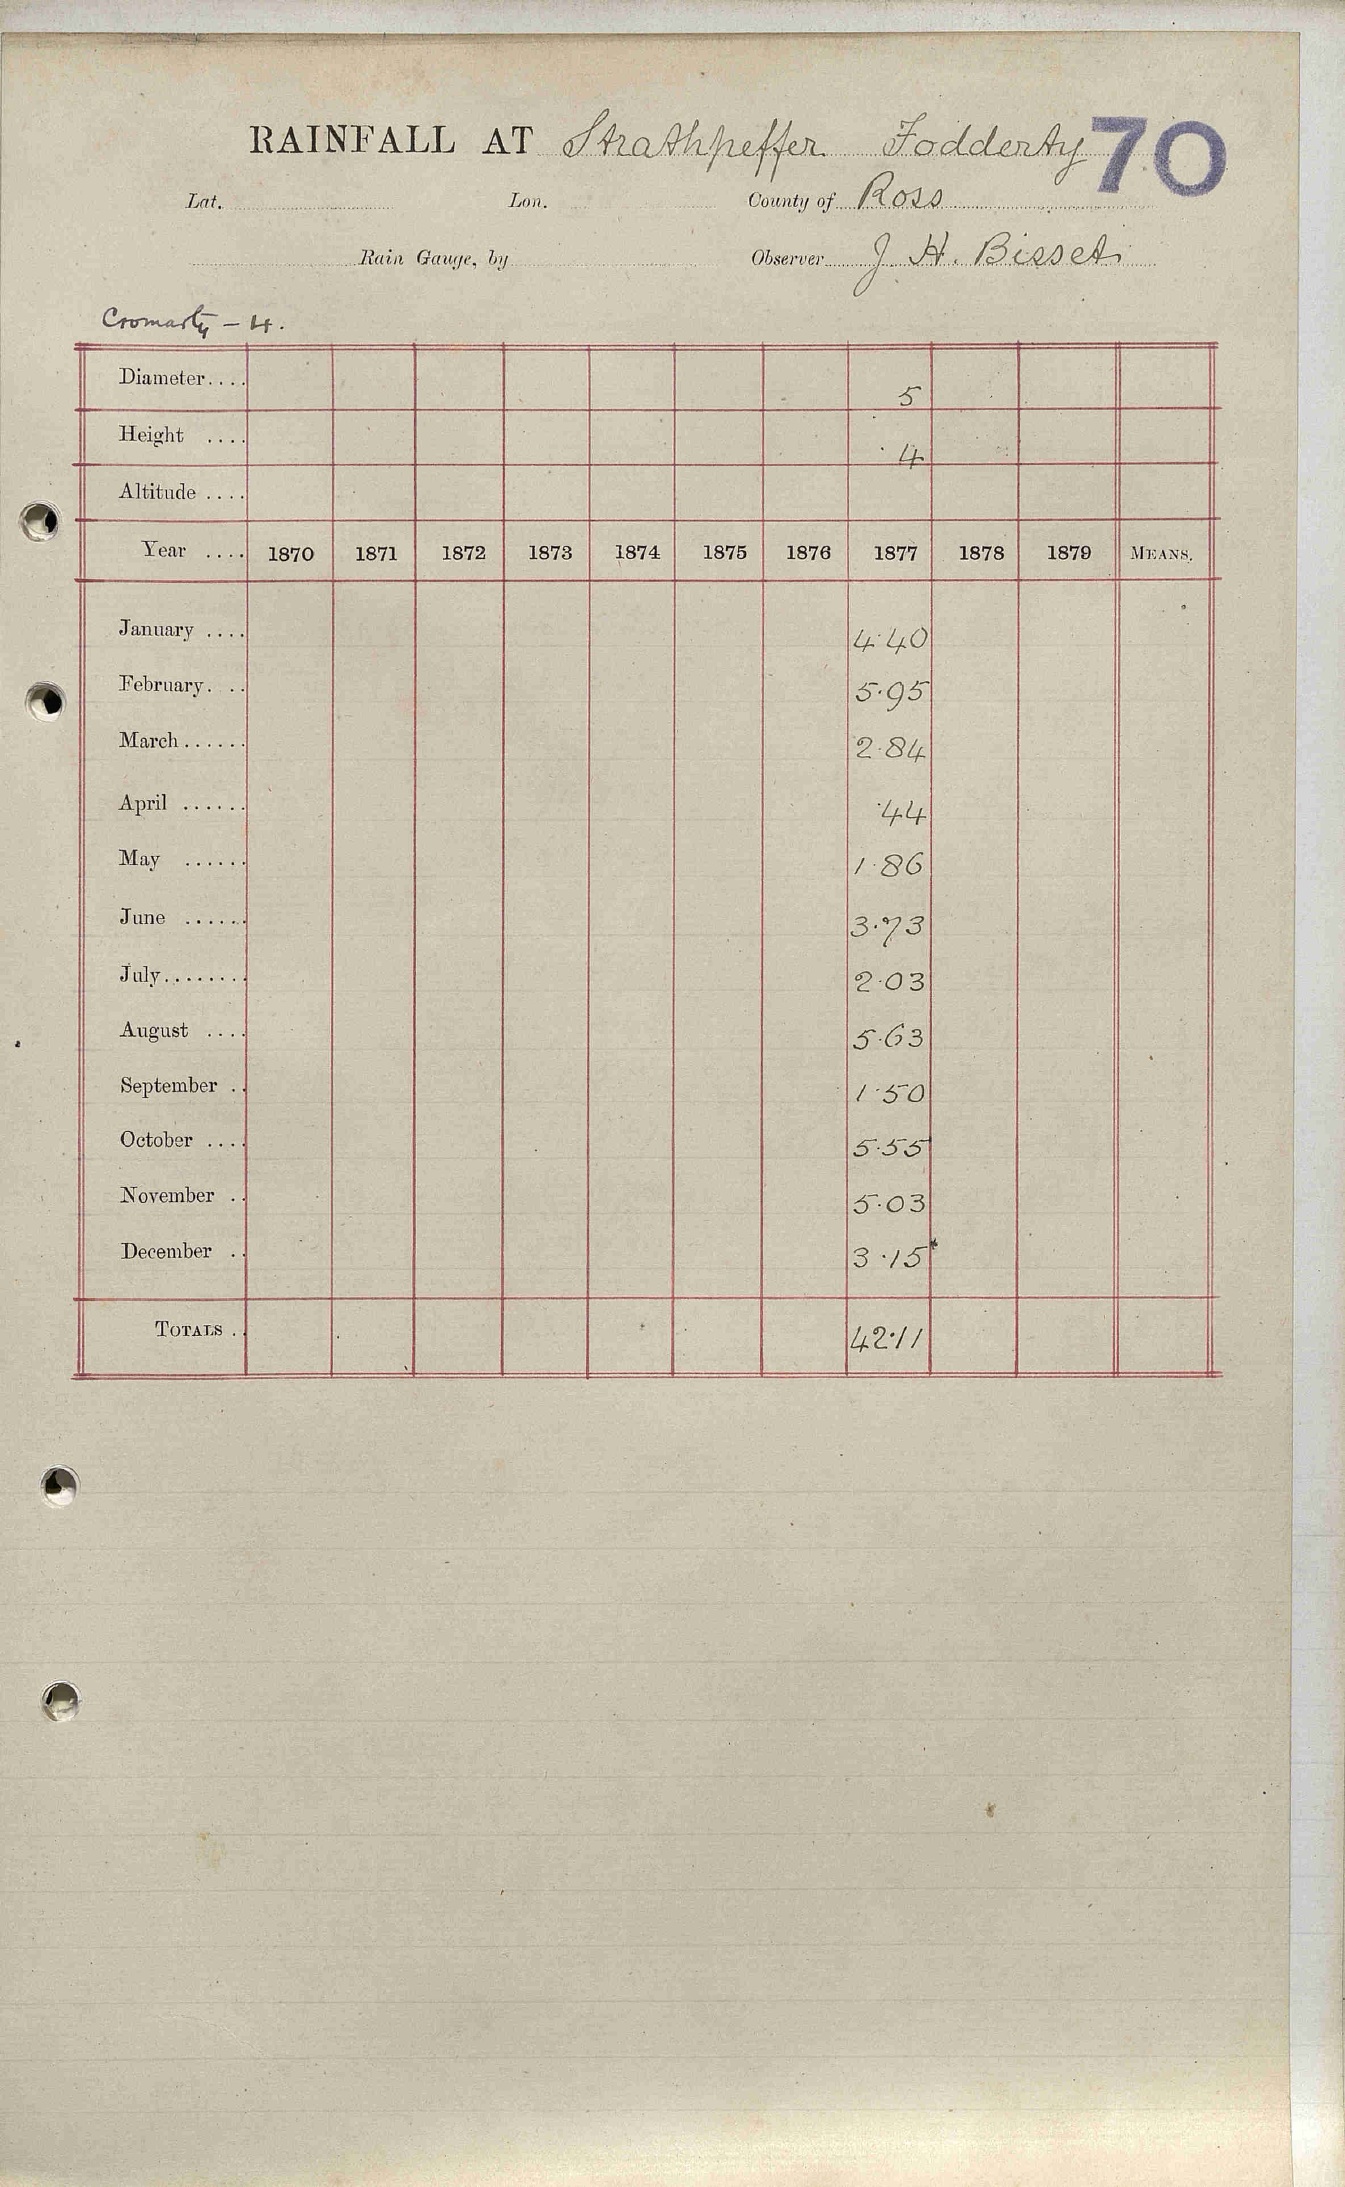 RAINFALL AT Strathpeffer Fodderty 70
Lat. Lon. County of Ross
Rain Gauge, by Observer J. H. Bisset
Cromarty – 4.
Diameter.... 5
Height .... 4
Altitude ....
Year .... 1870 1871 1872 1873 1874 1875 1876 1877 1878 1879 MEANS.
January .... 4.40
February. .. 5.95
March...... 2.84
April ...... .44
May ...... 1.86
June ...... 3.73
July........ 2.03
August .... 5.63
September .. 1.50
October .... 5.55
November .. 5.03
December .. 3.15*
TOTALS .. 42.11